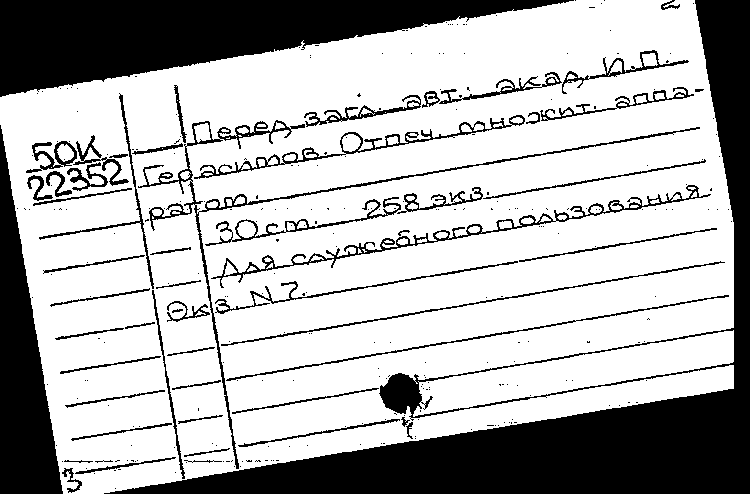 2
Перед загл. авт.: акад. И.П.
50К
Герасимов. Отпеч. множит. аппа-
22352
ратом.
30 см. 258 экз.
Для служебного пользования.
Экз. N 7.
3